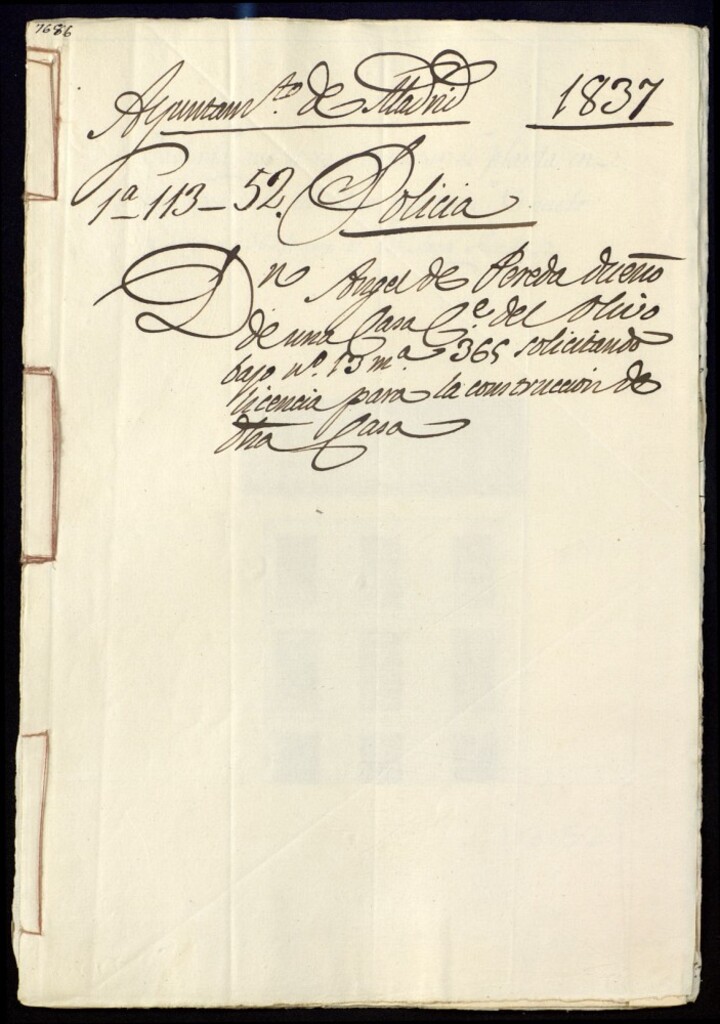 7686
Ayuntam.to de Madrid 1837
1ª 113-52. Policia
Dn Angel de Pereda dueño
de una Casa C.e del Olivo
bajo nº. 13 m.ª 365 solicitando
licencia para la construccion de
dha Casa